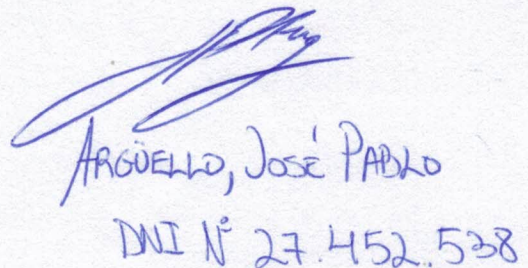 ARGÜELLO, JOSÉ PABLO
DNI N° 27.452.538